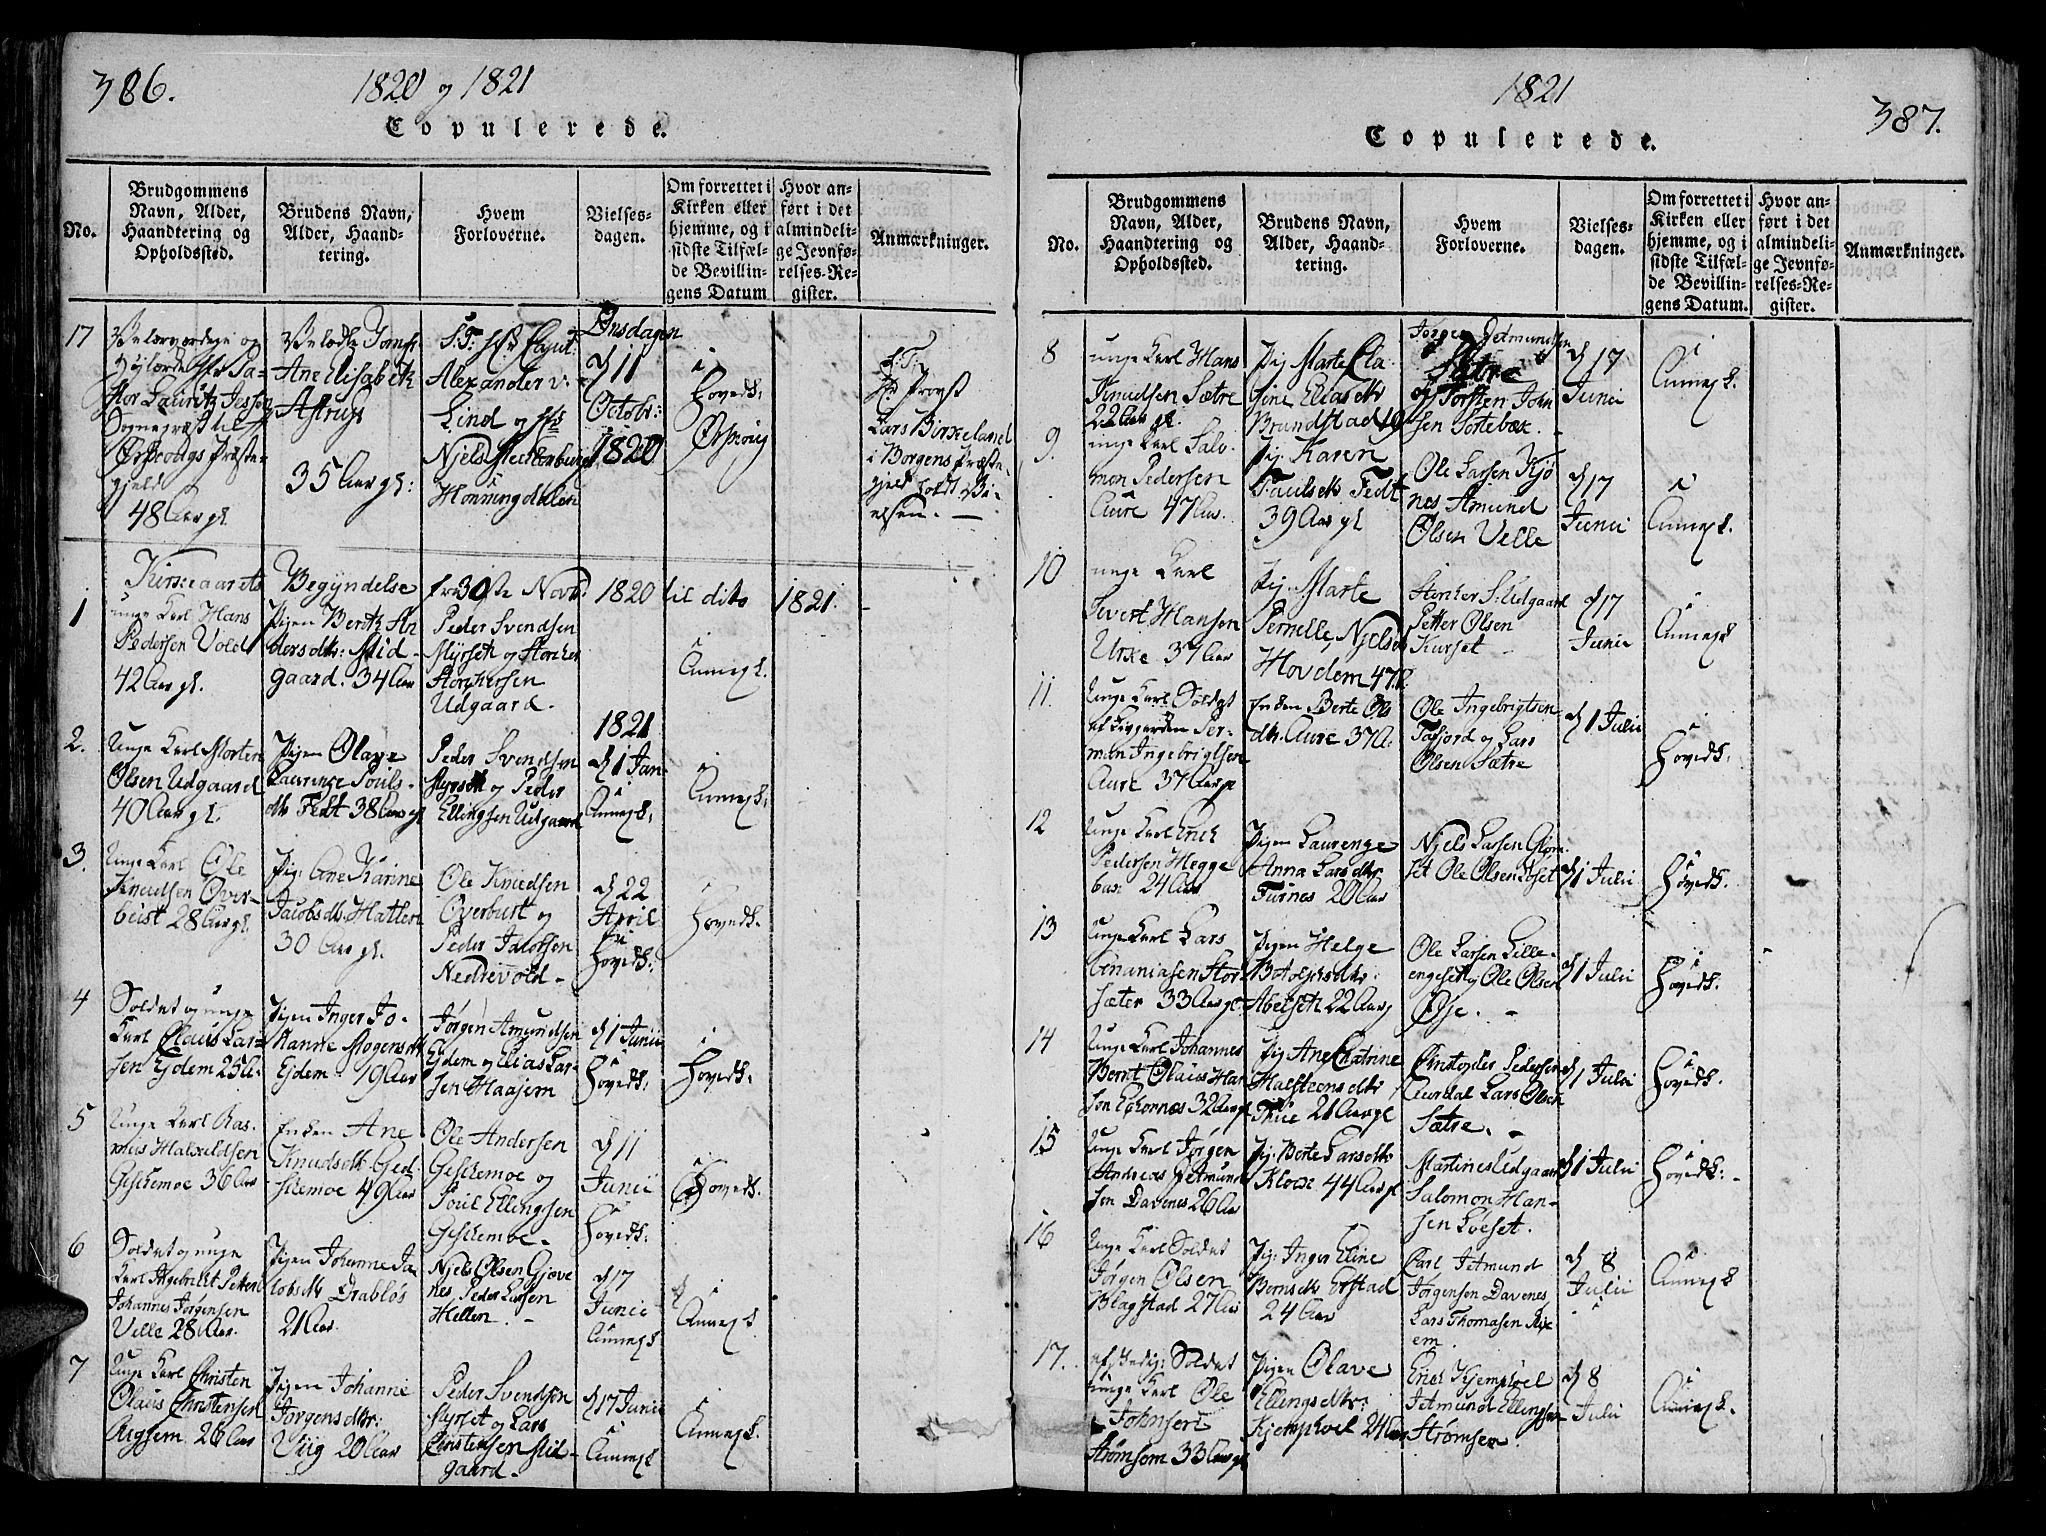 386.
1820 og 1821
Copulerede.
No.
Brudgommens Navn, Alder, Haandtering og Opholdssted.
Brudens Navn, Alder, Haandtering.
Hvem Forloverne.
Vielsesdagen.
Om forrettet i Kirken eller hjemme, og i sidste Tilfælde Bevillingens Datum
Hvor anført i det almindelige Jevnførelses-Register.
Anmærkninger.
17
Velærværdige og
Høylærde Hr Pastor Lauritz Jessen
Sognepræst til
Ørskougs Præstegjeld
48 Aar gl.
Velædle Jomfr
Ane Elisabeth
Astrup
35 Aar gl:
S: T: Hr Capit:
Alexander v:
Lind og Hr
Njels Mecklenburg
Honningdalen
Onsdagen
d 11
Octobr:
1820
i
Hovedk:
Ørskoug
S. T.
Hr Provst
Lars Birkeland
i Borgens Præstegjeld holdt Vielsen. —
Kirkeaarets Begyndelse fra 30te Novb: 1820 til dito 1821.
1
unge Karl Hans
Pedersen Vold
42 Aar gl.
Pigen Berthe Andersdtr: Midgaard. 34 Aar
Peder Svendsen
Myrseth og Storcher
Storchersen
Udgaard.
i
Annexk.
2.
Unge Karl Morten
Olsen Udgaard
40 Aar gl.
Pigen Olave
Laurence Poulsdtr Fedt 38 Aar gl
Peder Svendsen
Myrseth og Peder
Ellingsen Udgaard
1821
d 1 Jan
i
Annexk.
i
Annexk:
3.
Unge Karl Ole
Knudsen Overbust 28 Aar gl.
Pig: Ane Karine
Jacobsdtr. Hatlen
30 Aar gl.
Ole Knudsen
Overbust og
Peder Jacobsen
Nedrevold
d 22
April
Hovedk:
i
Hovedk.
4
Soldat og unge
Karl Olaus Larsen Ejdem 25 A.
Pigen Inger Johanne Mogensdtr
Ejdem 19 Aar
Jørgen Amundsen
Ejdem og Elias Larsen Haajem
d 1 Junii
Hovedk:
i
Hovedk.
5
Unge Karl Rasmus
Geschemoe 36 Aar
Enken Ane
Knudsdtr Geschemoe 49 Aar
Ole Andersen
Geschemoe og
Poul Ellingsen
Geschemoe
d 11
Junii
Hovedk:
i
Hovedk.
6
Soldat og unge
Karl Ingebrigt Petter
Johannes Jørgensen
Velle 28 Aar.
Pigen Johanne Jacobsdtr Drabløs
21 Aar.
Njels Olsen Gjævenes, Peder Larsen
Hellen.
d 17
Junii
Annexk
i
Annexk.
7
Unge Karl Christen
Olaus Christensen
Aigsem 26 Aar
Pigen Johanne
Jørgensdtr:
Viig 20 Aar
Peder Svendsen
Myrset og Lars
Christensen Midgaard.
d 17 Junii
i
Annexk
i
Annexk.
1821
387.
Copulerede.
No.
Brudgommens Navn, Alder, Haandtering og Opholdssted.
Brudens Navn, Alder, Haandtering.
Hvem Forloverne.
Vielsesdagen.
Om forrettet i Kirken eller hjemme, og i sidste Tilfælde Bevillingens Datum.
Hvor anført i det almindelige Jevnførelses-Register.
Anmærkninger.
8
unge Karl Hans
Knudsen Sætre
22 Aar gl.
Pig Marte Eliasdtr
Brandstad
Jørgen Jetmundsen
Sætre
og Torsten Johnsen Sortebæk.
d 17
Junii
i
Annexk.
9.
unge Karl Salomon Pedersen
Aure 47 Aar.
Pig. Karen
Paulsdtr Fedt
39 Aar gl
Ole Larsen Kjønes Amund
Olsen Velle
d 17
Junii
i
Annexk.
10
unge Karl
Sivert Hansen
Urke 37 Aar
Pig. Marte
Pernelle Njelsd
Hovdem 47 A.
Storcher S. Udgaard
Petter Olsen
Kurset
d 17
Junii
i
Annexk
11.
Unge Karl Soldat
af Livgarden Perman Ingebrigtsen
Aure 37 Aar gl
Enken Berte Olsdtr. Aure 37 A.
Ole Ingebrigtsen
Tafjord og Lars
Olsen Sætre
d 1 Julii
i
Hovedk.
12
Unge Karl Erich
Pedersen Heggebax 24 Aar
Pigen Laurenze
Anna Larsdtr
Furnes 20 Aar
Njels Larsen Glomset Ole Olsen
d 1 Julii
i
Hovedk.
13
Unge Karl Lars
Ananiasen Storsæter 33 Aar gl
Pigen Helge
Botolphsdtr:
Abelseth 22 Aar g
Ole Larsen Lilleengeset og Ole Olsen
Øye.
d 1 Julii
i
Hovedk.
14
Unge Karl Johannes
Bernt Olaus Hansen Ephornæs 32 Aar gl
Pig. Ane Chatrine
Halsteensdtr
Thue 21 Aar gl
Christopher Pedersen
Aurdal Lars Olsen
Sætre.
d 1 Julii
i
Hovedk.
15
Unge Karl Jørgen
Andreas Jetmundsen Davenes 26 Aar
Pig. Berte Larsdtr
Klok 44 Aar gl
Martines Udgaard
Salomon Hansen Løeset.
d 1 Julii
i
Hovedk:
16
Unge Karl Soldat
Jørgen Olsen
Blagstad 27 Aar
Pig: Inger Eline
Berntsdtr Erstad
24 Aar
Carl Jetmund
Jørgensen Davenes
Lars Thomasen
d 8
Julii
i
Annexk
17.
afskedig: Soldat
unge Karl Ole
Johnsen
Strømsem 33 Aar gl
Pigen Olave
Ellingsdtr:
Kjemphoel 24 Aar
Erich Kjemphoel
Jetmund Ellingsen
Strømsen.
d 8
Julii
i
Annexk.